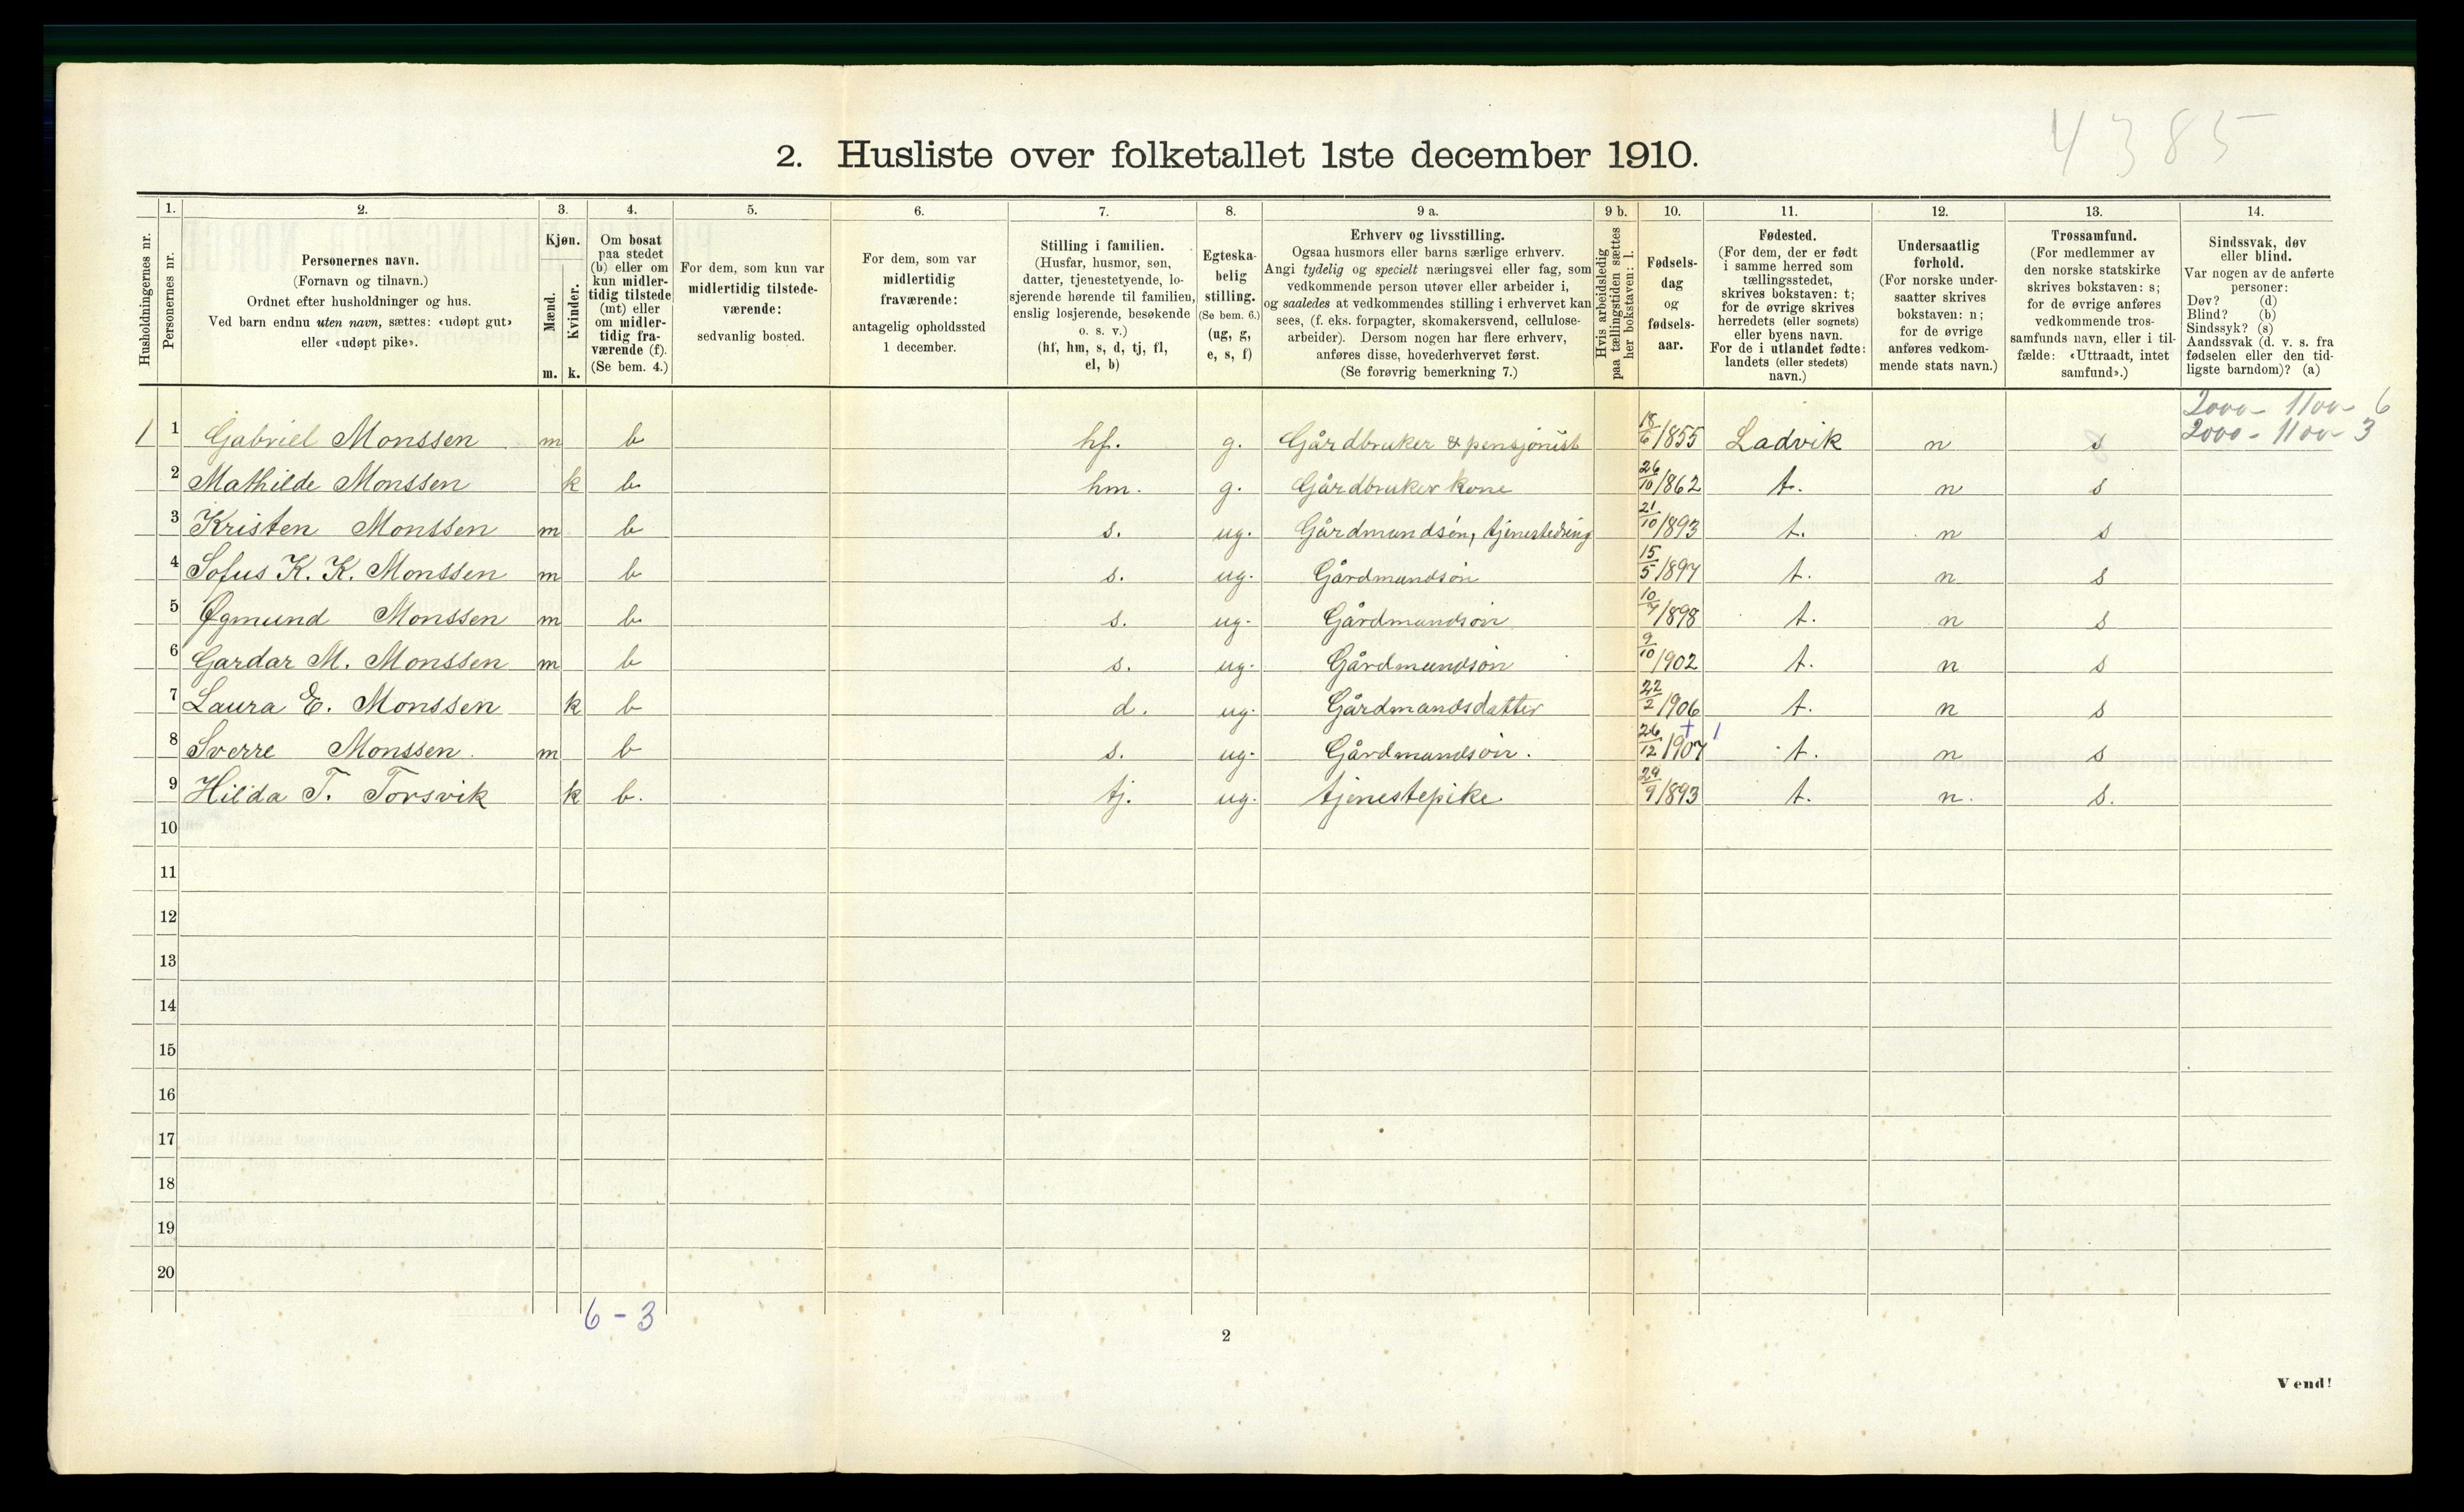 4385
2. Husliste over folketallet 1ste december 1910.
1. 2. 3. 4. 5. 6. 7. 8. 9 a. 9 b. 10. 11. 12. 13. 14.
Husholdningernes nr.
Personernes nr.
Personernes navn.
(Fornavn og tilnavn.)
Ordnet efter husholdninger og hus.
Ved barn endnu uten navn, sættes: «udøpt gut»
eller «udøpt pike».
Kjøn.
Mænd.
Kvinder.
m. k.
Om bosat
paa stedet
(b) eller om
kun midler-
tidig tilstede
(mt) eller
om midler-
tidig fra-
værende (f).
(Se bem. 4.)
For dem, som kun var
midlertidig tilstede-
værende:
sedvanlig bosted.
For dem, som var
midlertidig
fraværende:
antagelig opholdssted
1 december.
Stilling i familien.
(Husfar, husmor, søn,
datter, tjenestetyende, lo-
sjerende hørende til familien,
enslig losjerende, besøkende
o. s. v.)
(hf, hm, s, d, tj, fl,
el, b)
Egteska-
belig
stilling.
(Se bem. 6.)
(ug, g,
e, s, f)
Erhverv og livsstilling.
Ogsaa husmors eller barns særlige erhverv.
Angi tydelig og specielt næringsvei eller fag, som
vedkommende person utøver eller arbeider i,
og saaledes at vedkommendes stilling i erhvervet kan
sees, (f. eks. forpagter, skomakersvend, cellulose-
arbeider). Dersom nogen har flere erhverv,
anføres disse, hovederhvervet først.
(Se forøvrig bemerkning 7.)
Hvis arbeidsledig
paa tællingstiden sættes
her bokstaven: l.
Fødsels-
dag
og
fødsels-
aar.
Fødested.
(For dem, der er født
i samme herred som
tællingsstedet,
skrives bokstaven: t;
for de øvrige skrives
herredets (eller sognets)
eller byens navn.
For de i utlandet fødte:
landets (eller stedets)
navn.)
Undersaatlig
forhold.
(For norske under-
saatter skrives
bokstaven: n;
for de øvrige
anføres vedkom-
mende stats navn.)
Trossamfund.
(For medlemmer av
den norske statskirke
skrives bokstaven: s;
for de øvrige anføres
vedkommende tros-
samfunds navn, eller i til-
fælde: «Uttraadt, intet
samfund».)
Sindssvak, døv
eller blind.
Var nogen av de anførte
personer:
Døv? (d)
Blind? (b)
Sindssyk? (s)
Aandssvak (d. v. s. fra
fødselen eller den tid-
ligste barndom)? (a)
2000 - 1100 - 6
2000 - 1100 - 3
1 1 Gabriel Monssen m b hf. g. Gårdbruker & pensjonist 18/6 1855 Ladvik n s
2 Mathilde Monssen k b. hm. g. Gårdbruker kone 26/10 1862 t. n s
3 Kristen Monssen m b s. ug. Gårdmandsön, tjenestedreng 21/10 1893 t. n s
4 Sofus K. K. Monssen m b s. ug. Gårdmandsön 15/5 1897 t. n s
5 Øgmund Monssen m b. s. ug. Gårdmandsön 10/7 1898 t. n s
6 Gardar M. Monssen m b s. ug. Gårdmandsön 9/10 1902 t. n s
7 Laura E. Monssen k b d. ug. Gårdmandsdatter 22/2 1906 t. n s
8 Sverre Monssen. m b s. ug. Gårdmandsön. 26/12 1907 + 1 t. n s
9 Hilda T. Torsvik k b. tj. ug. tjenestepike 29/9 1893 t. n. s.
10
11
12
13
14
15
16
17
18
19
20
6 - 3
2
Vend!